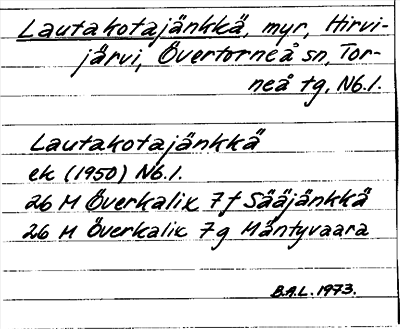 Lautakotajänkkä, myr, Hirvi-
järvi, Övertorneå sn, Tor-
neå tg, Nb.l.
Lautakotajänkkä
ek (1950) Nb.l.
26 M Överkalix 7 f Sääjänkkä
26 M Överkalix 7 g Mäntyvaara
B.A.L. 1973.